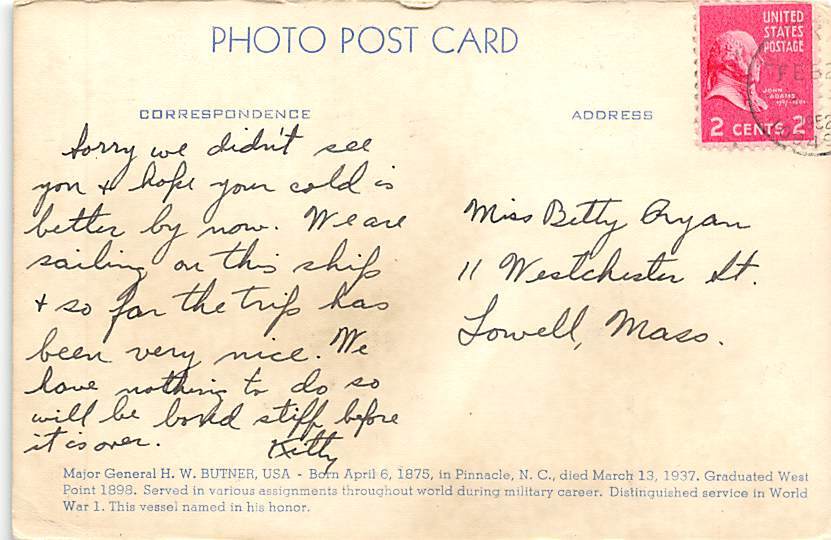 PHOTO POST CARD
UNITED
STATES
POSTAGE
JOHN
ADAMS
2 CENTS 2
CORRESPONDENCE
ADDRESS
Sorry we didn't see
you & hope your cold is
better by now. We are
sailing on this ship
& so far the trip has
been very nice. We
have nothing to do so
will be bored stiff before
it is over.
Kitty
Miss Betty Ryan
11 Westchester St.
Lowell, Mass.
Major General H. W. BUTNER, USA - Born April 6, 1875, in Pinnacle, N. C., died March 13, 1937. Graduated West
Point 1898. Served in various assignments throughout world during military career. Distinguished service in World
War 1. This vessel named in his honor.